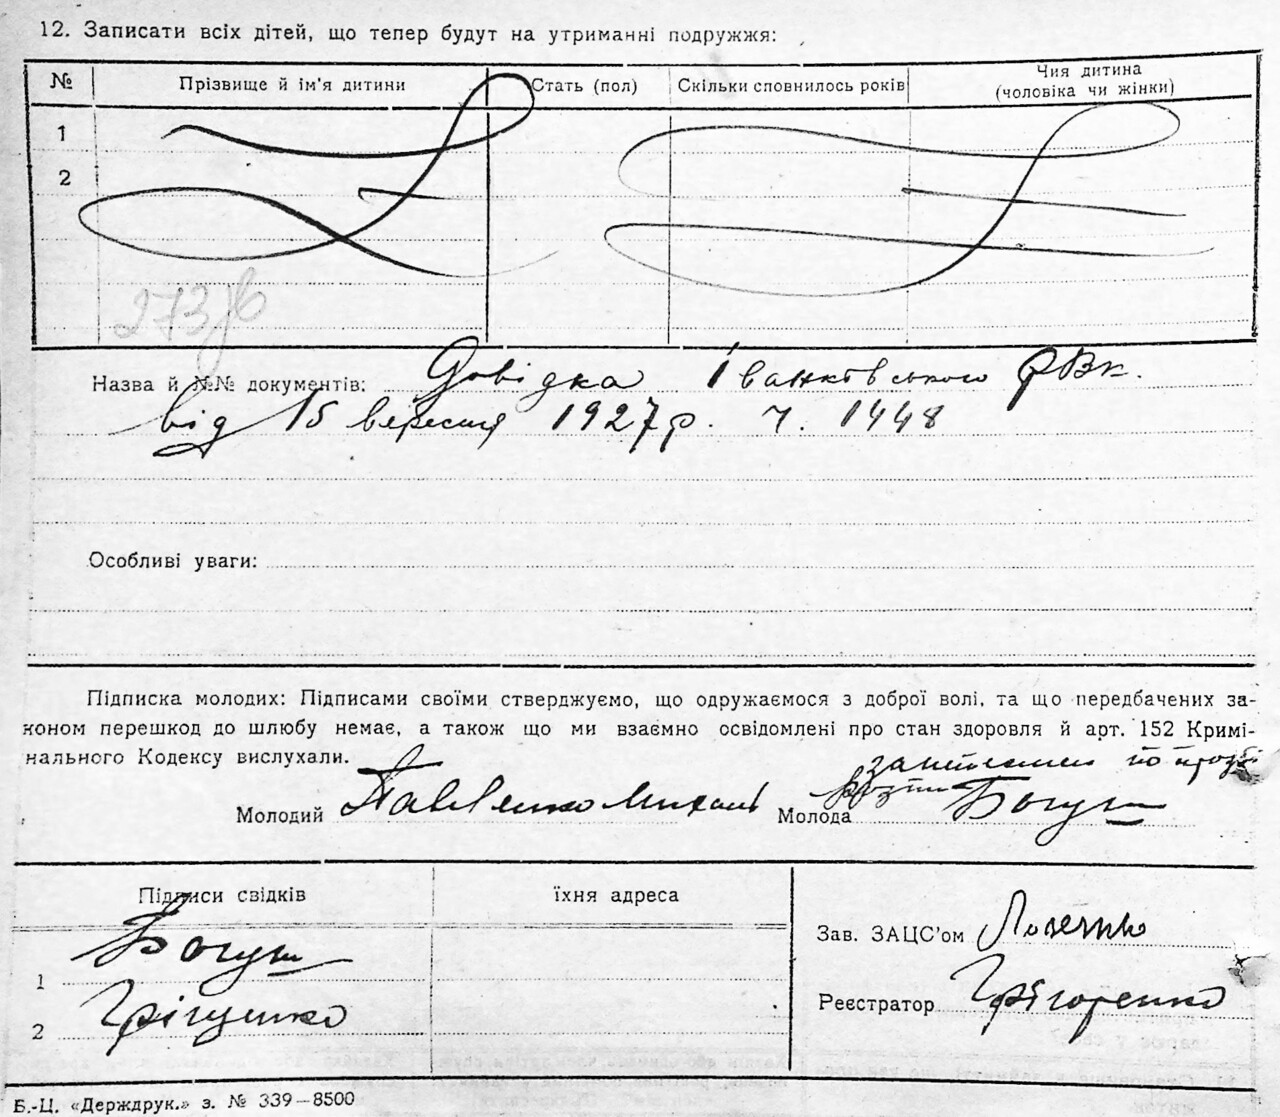 12. Записати всіх дітей, що тепер будут на утриманні подружжя:
№ Прізвище й ім'я дитини Стать (пол) Скільки сповнилось років Чия дитина (чоловіка чи жінки)
1
2
273
Назва й №№ документів: Довідка Іванківського РВК.
від 15 вересня 1927 р. ч. 1448
Особливі уваги:
Підписка молодих: Підписами своїми стверджуємо, що одружаємося з доброї волі, та що передбачених за-
коном перешкод до шлюбу немає, а також що ми взаємно освідомлені про стан здоровля й арт. 152 Кримі-
нального Кодексу вислухали.
по прозбі
Молодий Павленко Михаіл Молода Богуш
Підписи свідків їхня адреса
Зав. ЗАЦС'ом
1 Богуш
Реєстратор Грігоренко
2 Гріценко
Б.-Ц. «Держдрук.» з. № 339—8500